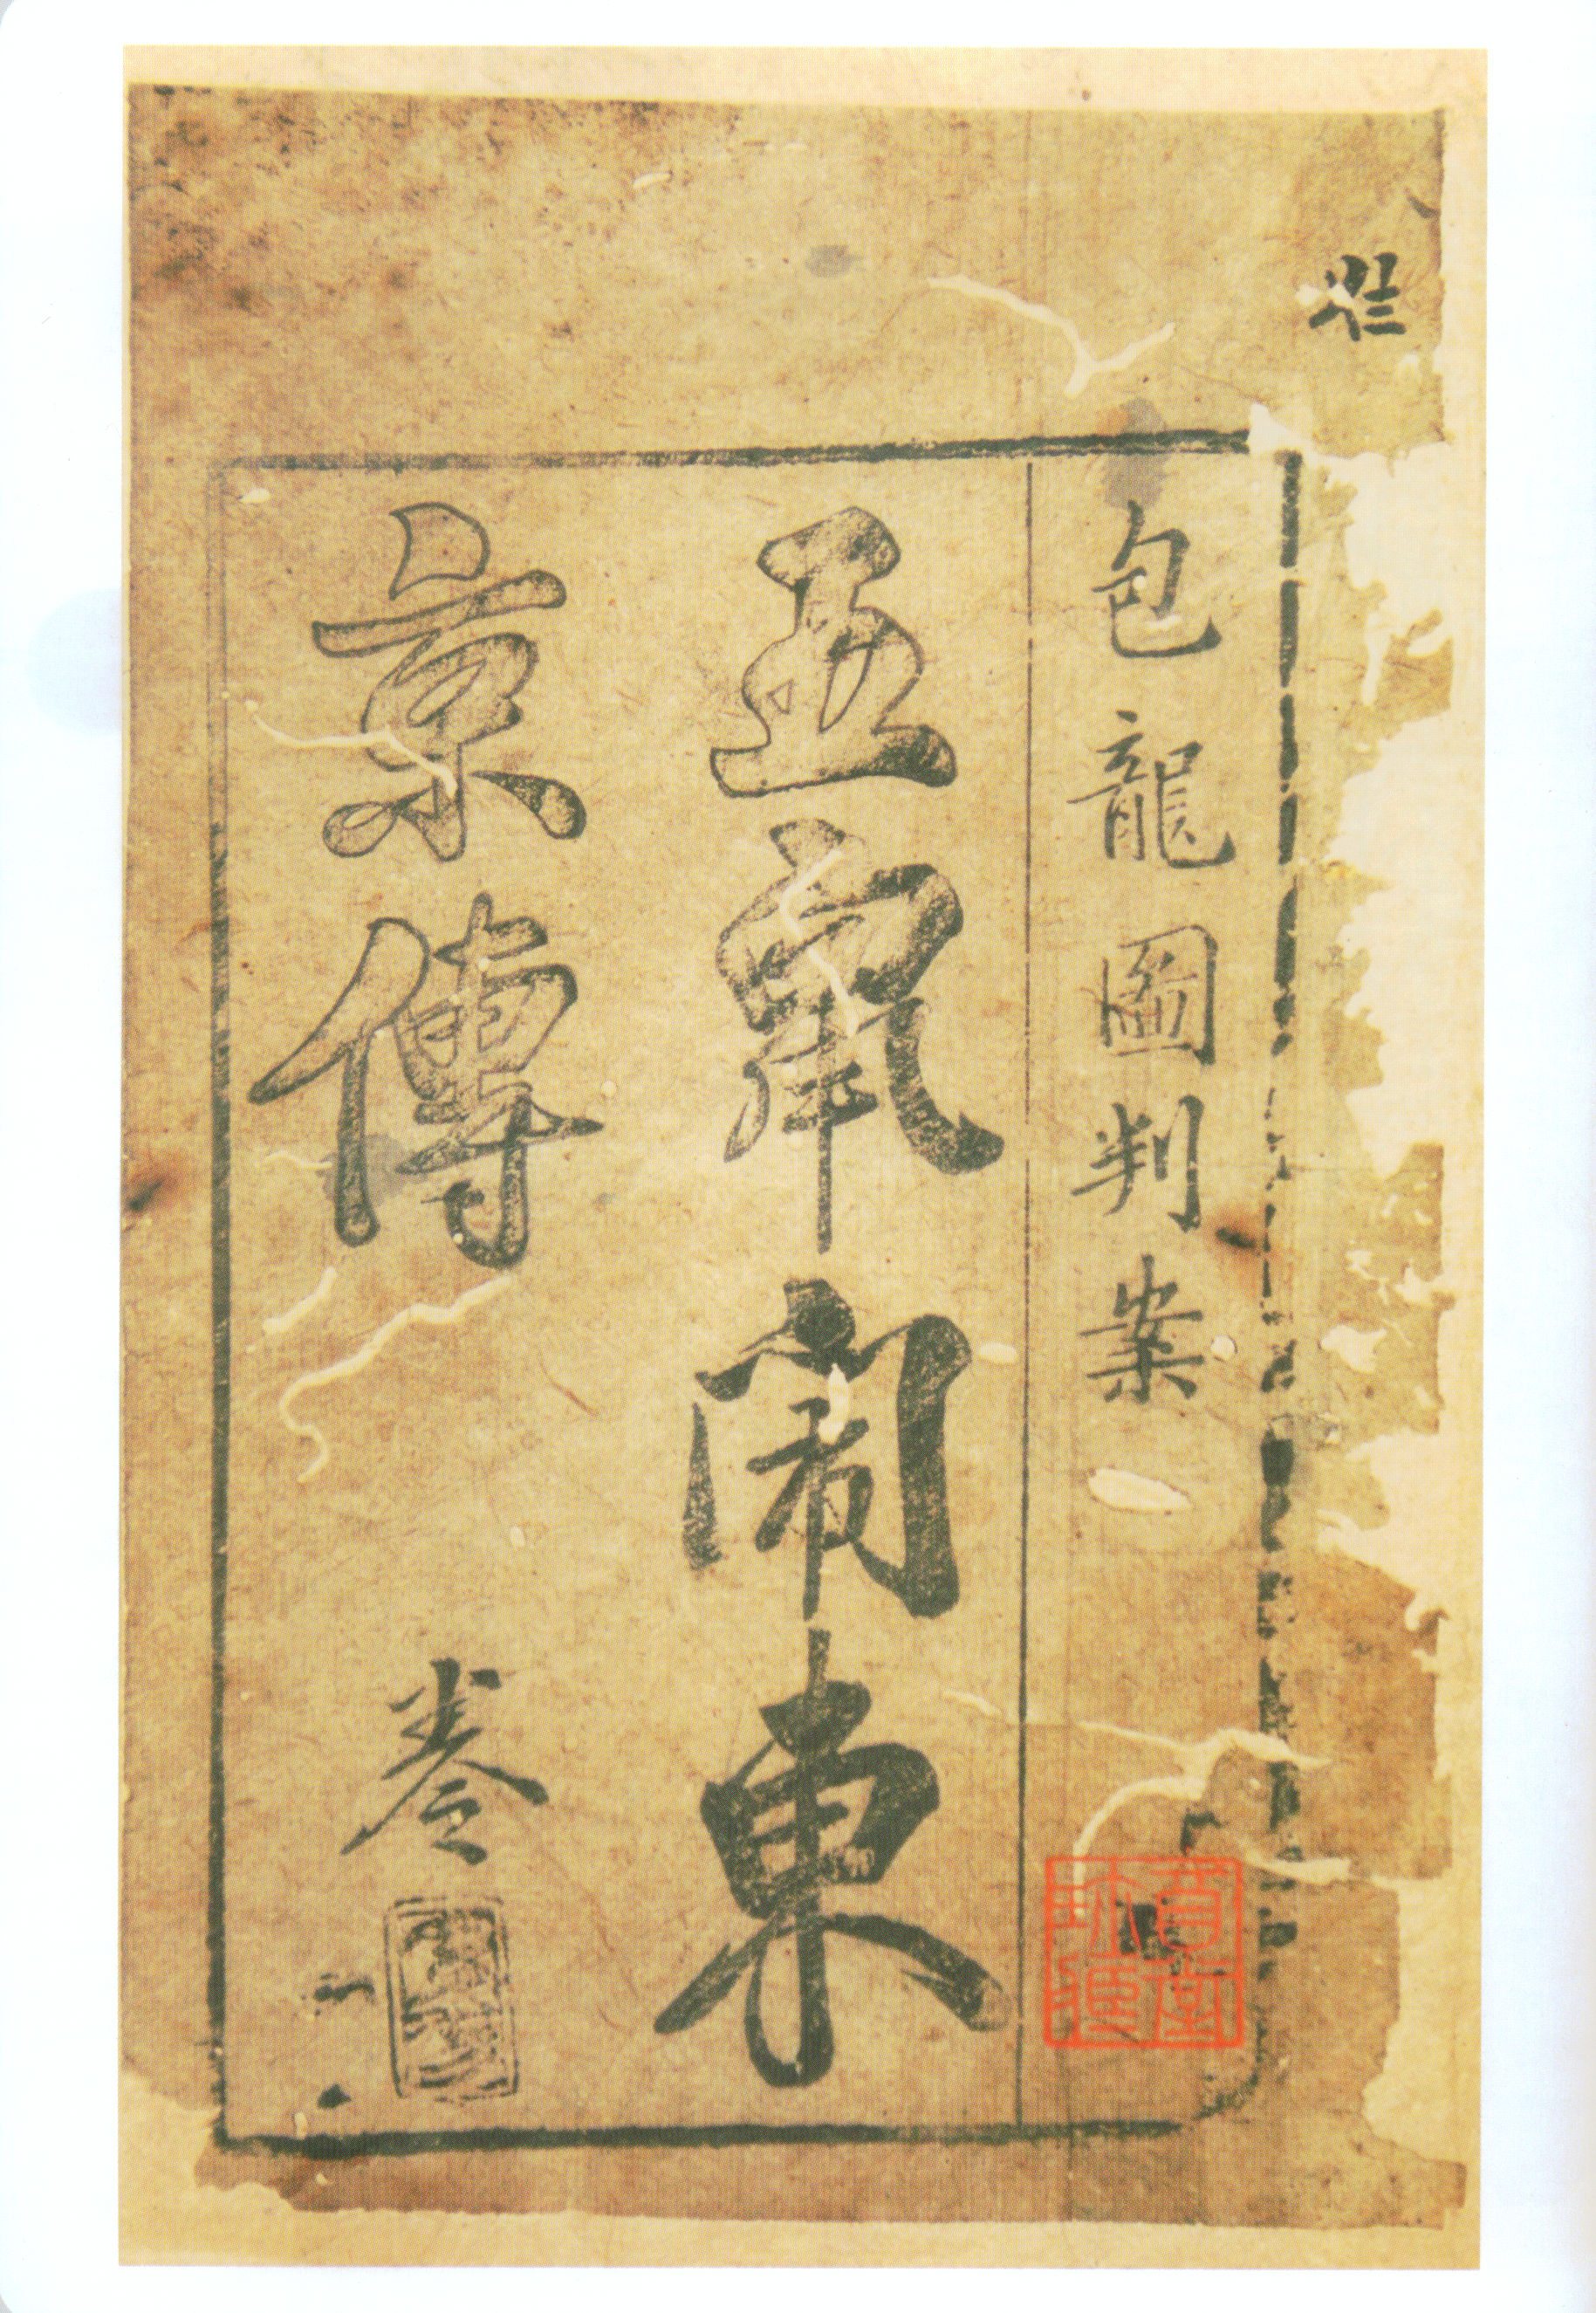 包龍圖判案
五鼠鬧東
京傳
卷